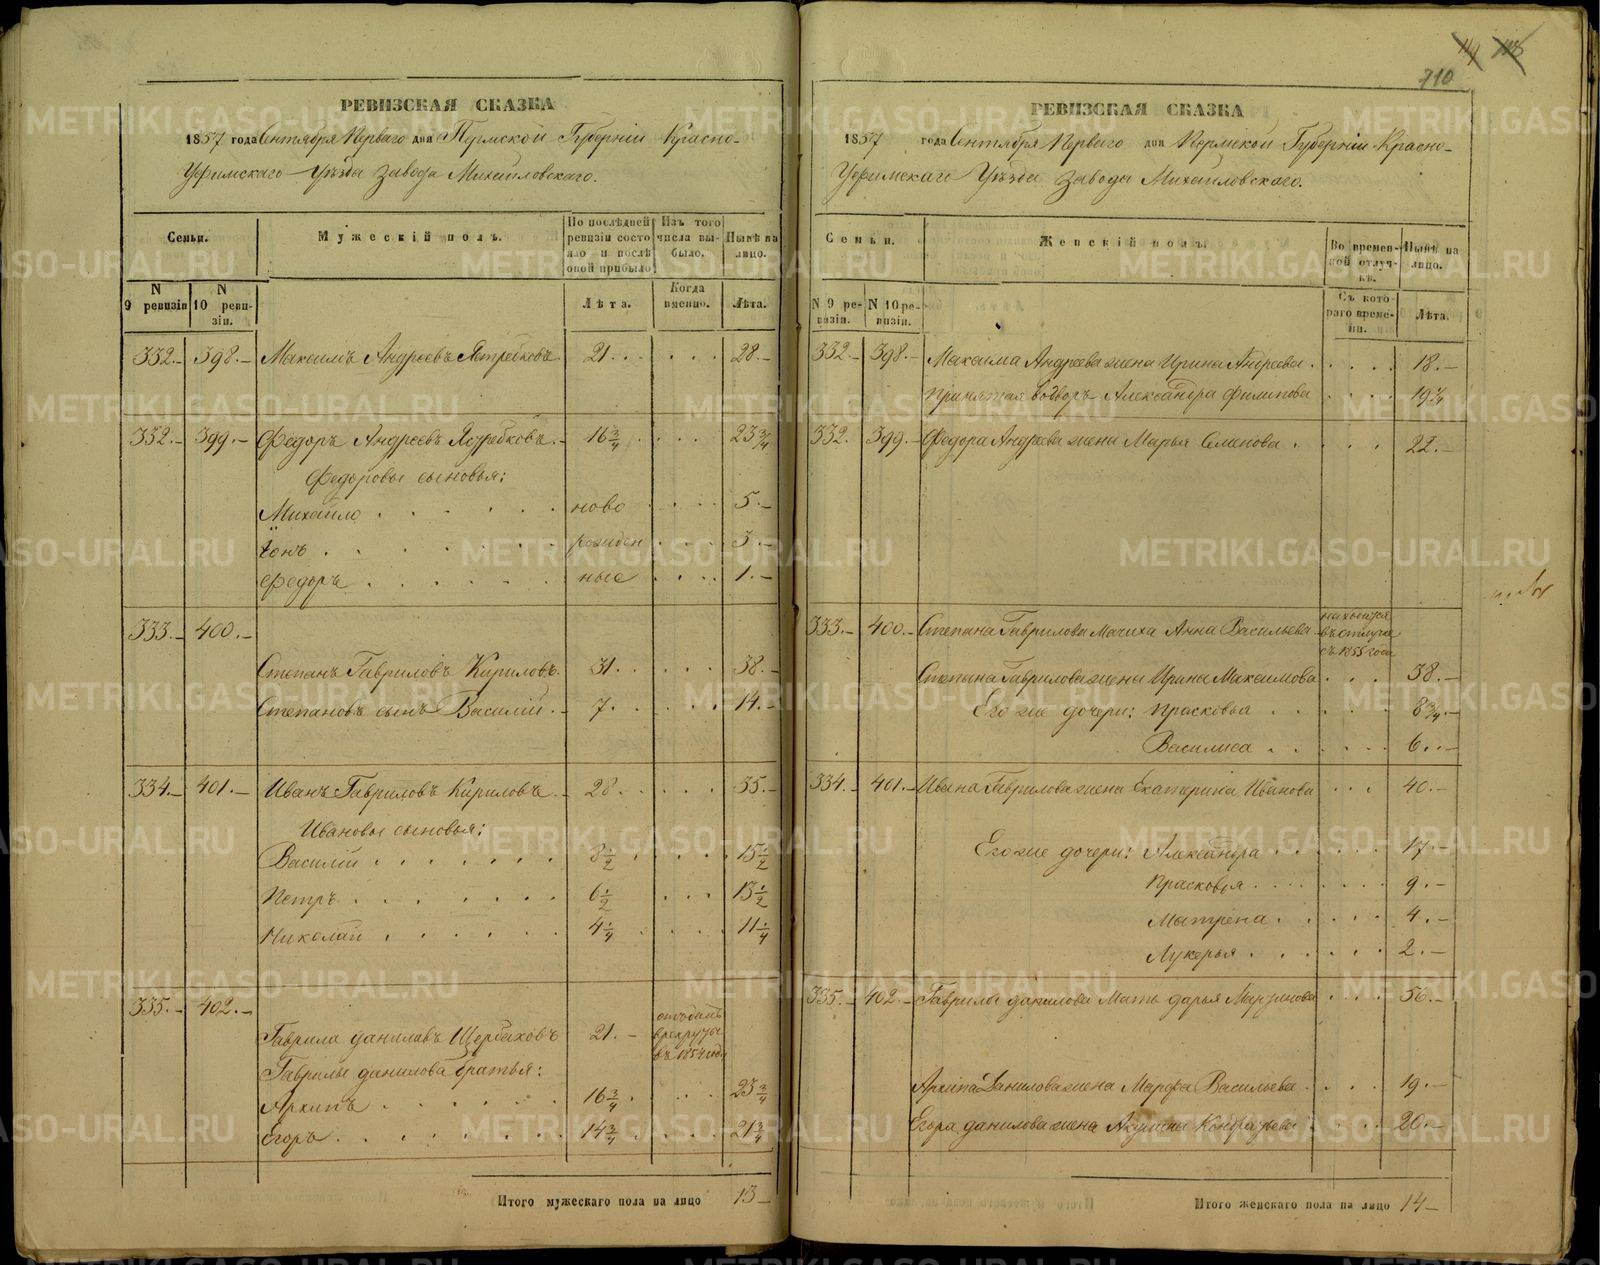 РЕВИЗСКАЯ СКАЗКА
1857 года Сентября Перваго дня Пермской Губерніи Красно-
Уфимскаго Уѣзда Завода Михайловскаго.
Семьи.
Мужескій полъ.
По послѣдней ревизіи состояло и послѣ оной прибыло
Изъ того числа выбыло.
Нынѣ на лицо.
N 9 ревизіи
N 10 ревизіи.
Лѣта.
Когда именно.
Лѣта.
332. 398. Максимъ Андреевъ Ястребковъ 21 28
332. 399. Федоръ Андреевъ Ястребковъ 16 3/4 23 3/4
Федоровы сыновья:
Михайло ново 5
Іонъ рожден 3
Федоръ ные 1
333. 400.
Степанъ Гавриловъ Кириловъ 31 38
Степановъ сынъ Василій 7 14
334. 401. Иванъ Гавриловъ Кириловъ 28 35
Ивановы сыновья:
Василій 8 1/2 15 1/2
Петръ 6 1/2 13 1/2
Николай 4 1/4 11 1/4
335. 402.
Гаврила Даниловъ Щербаковъ 21 въ рекруты въ 1854 году
Гаврилы Данилова братья:
Архипъ 16 3/4 23 3/4
Егоръ 14 3/4 21 3/4
Итого мужескаго пола на лицо 13
710
РЕВИЗСКАЯ СКАЗКА
1857 года Сентября Перваго дня Пермской Губерніи Красно-
Уфимскаго Уѣзда Завода Михайловскаго.
Семьи.
Женскій полъ.
Во временной отлучкѣ.
Нынѣ на лицо.
N 9 ревизіи.
N 10 ревизіи.
Съ котораго времени.
Лѣта.
332. 398. Максима Андреева жена Ирина Андреева 18
Принятая во дворъ Александра Филипова 19 3/4
332. 399. Федора Андреева жена Марья Семенова 22
333. 400. Степана Гаврилова Мачиха Анна Васильева находится въ отлучке съ 1855 года
Степана Гаврилова жена Ирина Максимова 38
Его же дочери: Прасковья 8 3/4
Василиса 6
334. 401. Ивана Гаврилова жена Екатерина Иванова 40
Его же дочери: Александра 17
Прасковья 9
Матрена 4
Лукерья 2
335. 402. Гаврилы Данилова Мать Дарья 56
Архипа Данилова жена Марфа Васильева 19
Егора Данилова жена Акулина Кондратьева 20
Итого женскаго пола на лицо 14
METRIKI.GASO-URAL.RU